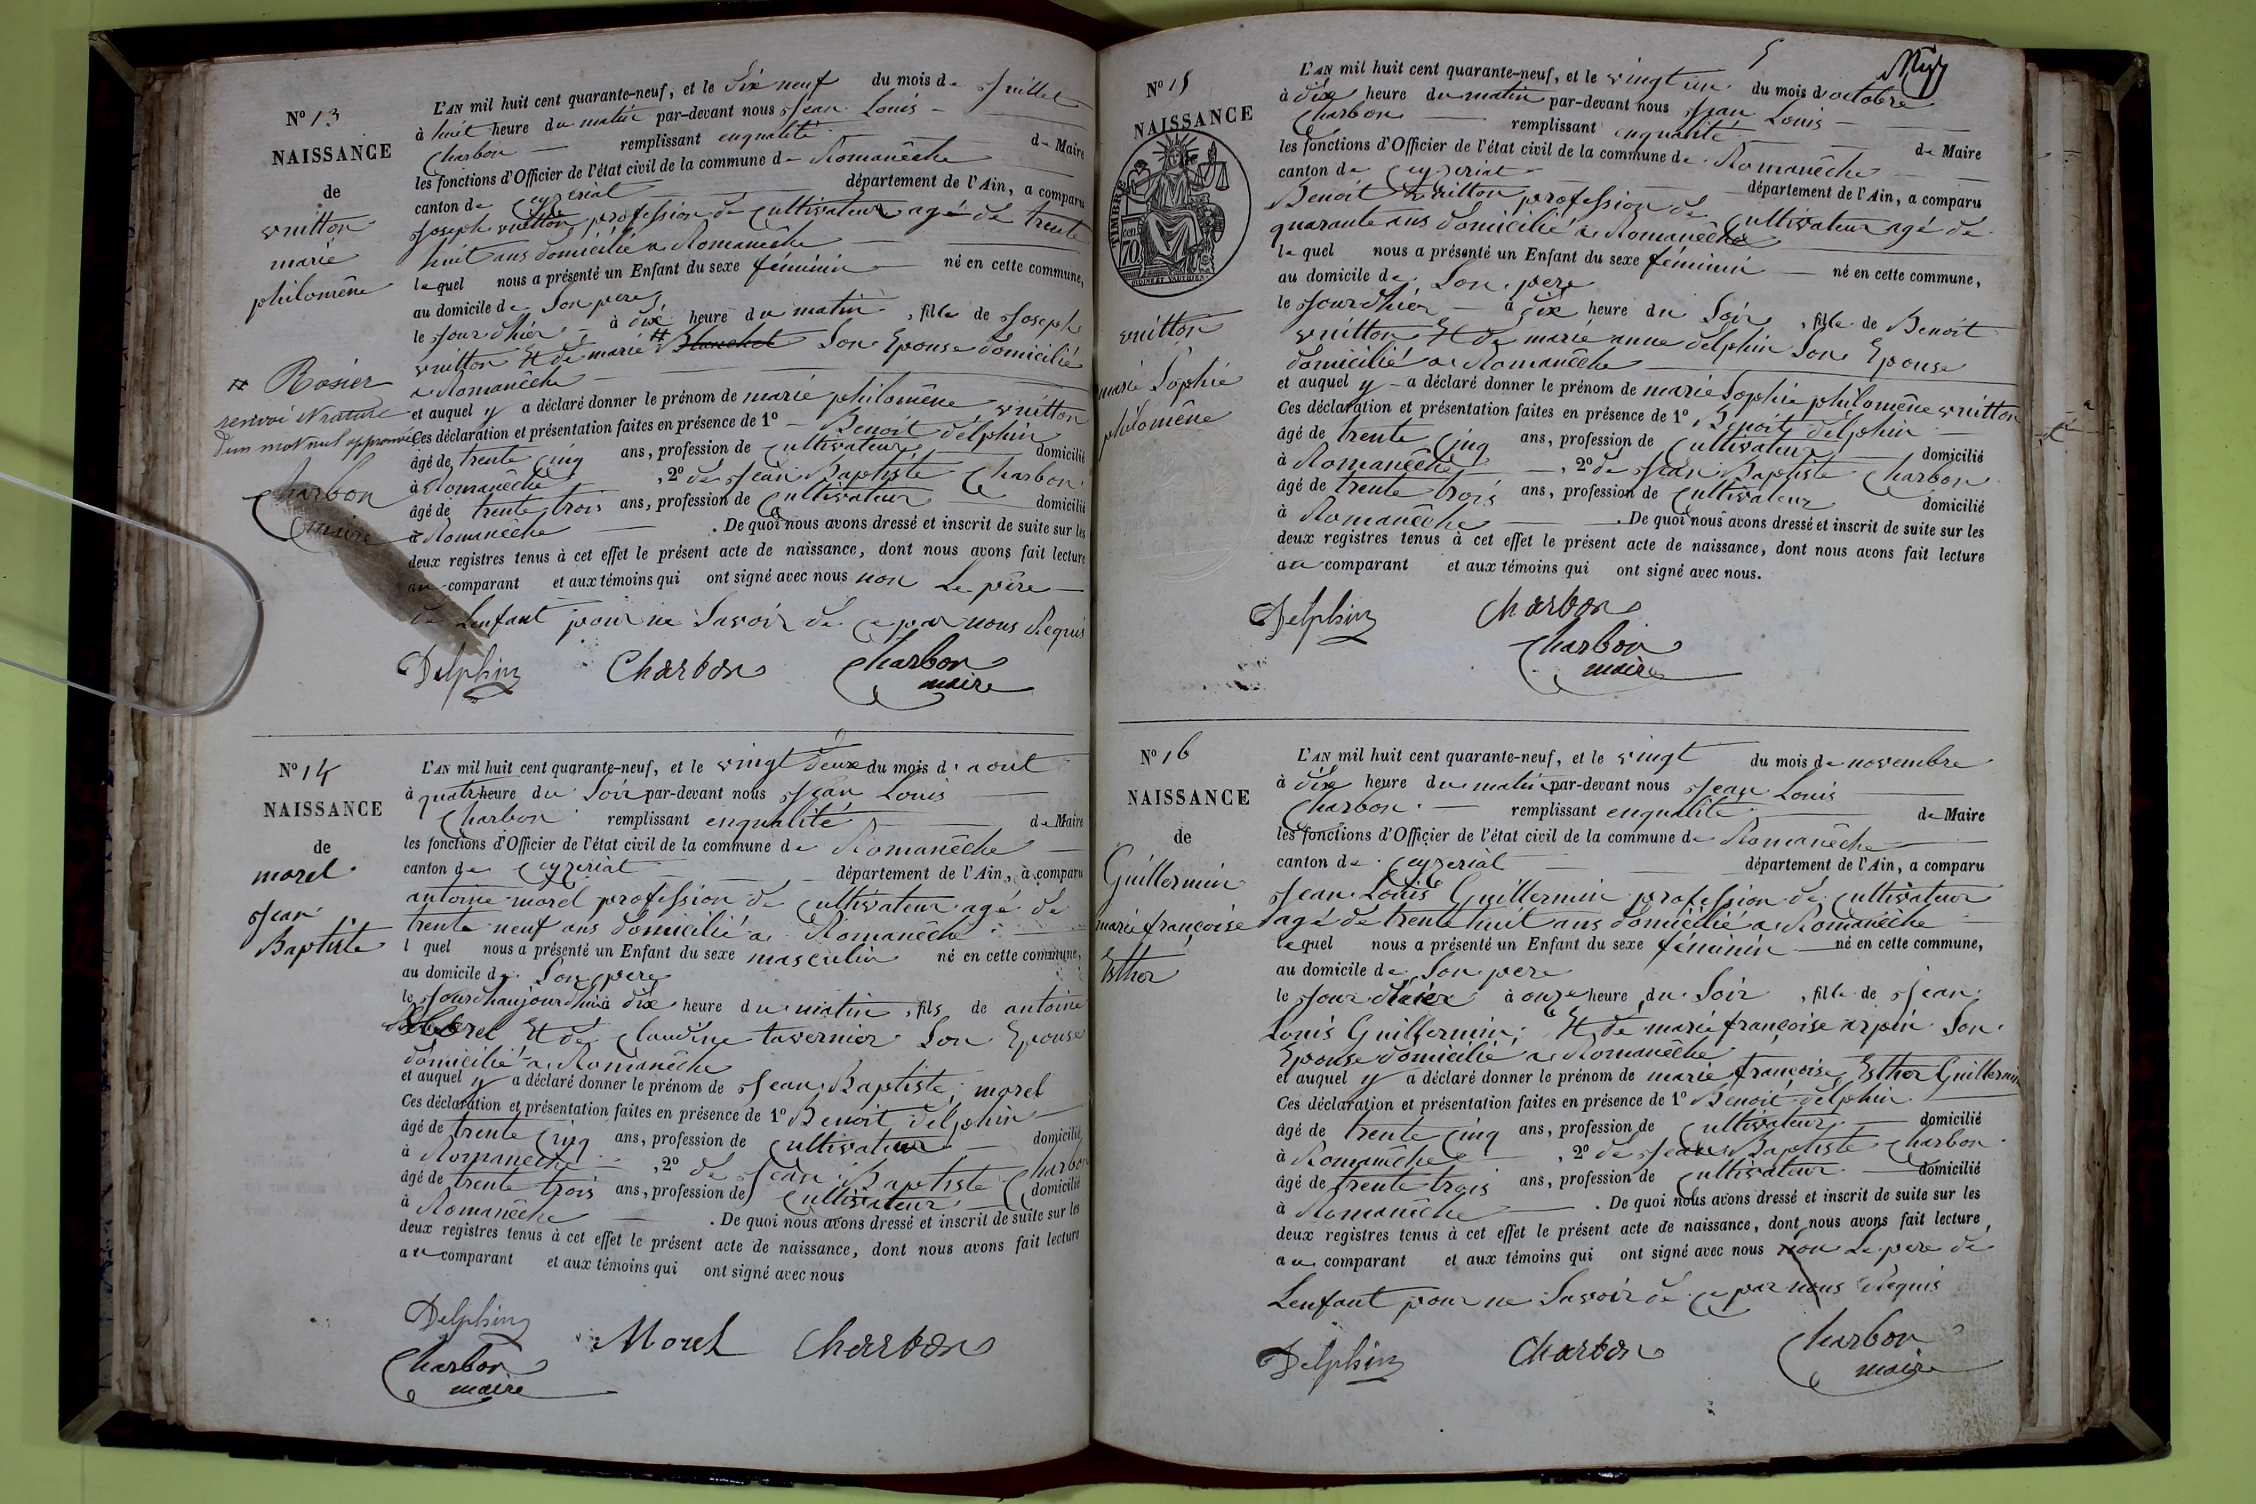 N° 13
NAISSANCE
de
vuitton
marie
philomêne
# Rosier
renvoi et rature
d'un mot nul approuvé
Charbon
maire
L'AN mil huit cent quarante-neuf, et le dix neuf du mois de Juillet
à huit heure du matin par-devant nous Jean Louis
Charbon remplissant enqualité de Maire
les fonctions d'Officier de l'état civil de la commune de Romanêche
canton de Ceyzeriat département de l'Ain, a comparu
Joseph vuitton profession de Cultivateur agé de trente
huit ans domicilié a Romanêche
lequel nous a présenté un Enfant du sexe féminin né en cette commune,
au domicile de Son pere
le Jour dhier à dix heure du matin, fille de Joseph
vuitton Et de marie # Blanchet Son Epouse domicilié
a Romanêche
et auquel y a déclaré donner le prénom de marie philomêne vuitton
Ces déclaration et présentation faites en présence de 1° Benoit delphin
âgé de trente Cinq ans, profession de Cultivateur domicilié
à Romanêche, 2° de Jean Baptiste Charbon
âgé de trente trois ans, profession de Cultivateur domicilié
à Romanêche. De quoi nous avons dressé et inscrit de suite sur les
deux registres tenus à cet effet le présent acte de naissance, dont nous avons fait lecture
au comparant et aux témoins qui ont signé avec nous non Le père
de Lenfant pour ne Savoir de ce par nous Requis
Delphin Charbon Charbon
maire
N° 14
NAISSANCE
de
morel
Jean
Baptiste
L'AN mil huit cent quarante-neuf, et le vingt deux du mois d'aout
à quatr heure du Soir par-devant nous Jean Louis
Charbon remplissant enqualité de Maire
les fonctions d'Officier de l'état civil de la commune de Romanêche
canton de Ceyzeriat département de l'Ain, a comparu
antoine morel profession de Cultivateur agé de
trente neuf ans domicilié a Romanêche
l quel nous a présenté un Enfant du sexe masculin né en cette commune,
au domicile de Son pere
le Jourdhaujourdhui à dix heure du matin, fils de antoine
morel Et de Claudine tavernier Son Epouse
domicilié a Romanêche
et auquel y a déclaré donner le prénom de Jean Baptiste morel
Ces déclaration et présentation faites en présence de 1° Benoit delphin
âgé de trente Cinq ans, profession de Cultivateur domicilié
à Romanêche, 2° de Jean Baptiste Charbon
âgé de trente trois ans, profession de Cultivateur domicilié
à Romanêche. De quoi nous avons dressé et inscrit de suite sur les
deux registres tenus à cet effet le présent acte de naissance, dont nous avons fait lecture
au comparant et aux témoins qui ont signé avec nous
Delphin
Morel Charbon
Charbon
maire
5
N° 15
NAISSANCE
TIMBRE
70 cen
vuitton
marie Sophie
philomêne
L'AN mil huit cent quarante-neuf, et le vingt un du mois d'octobre
à dix heure du matin par-devant nous Jean Louis
Charbon remplissant enqualité de Maire
les fonctions d'Officier de l'état civil de la commune de Romanêche
canton de Ceyzeriat département de l'Ain, a comparu
Benoit vuitton profession de Cultivateur agé de
quarante ans domicilié a Romanêche
lequel nous a présenté un Enfant du sexe féminin né en cette commune,
au domicile de Son pere
le Jour dhier à dix heure du Soir, fille de Benoit
vuitton Et de marie anne delphin Son Epouse
domicilié a Romanêche
et auquel y a déclaré donner le prénom de marie Sophie philomêne vuitton
Ces déclaration et présentation faites en présence de 1° Benoit delphin
âgé de trente Cinq ans, profession de Cultivateur domicilié
à Romanêche, 2° de Jean Baptiste Charbon
âgé de trente trois ans, profession de Cultivateur domicilié
à Romanêche. De quoi nous avons dressé et inscrit de suite sur les
deux registres tenus à cet effet le présent acte de naissance, dont nous avons fait lecture
au comparant et aux témoins qui ont signé avec nous.
Delphin Charbon
Charbon
maire
N° 16
NAISSANCE
de
Guillermin
marie françoise
Esther
L'AN mil huit cent quarante-neuf, et le vingt du mois de novembre
à dix heure du matin par-devant nous Jean Louis
Charbon remplissant enqualité de Maire
les fonctions d'Officier de l'état civil de la commune de Romanêche
canton de Ceyzeriat département de l'Ain, a comparu
Jean Louis Guillermin profession de Cultivateur
agé de trente huit ans domicilié a Romanêche
lequel nous a présenté un Enfant du sexe féminin né en cette commune,
au domicile de Son pere
le Jour dhier à onze heure du Soir, fille de Jean
Louis Guillermin, Et de marie françoise arpin Son
Epouse domicilié a Romanêche
et auquel y a déclaré donner le prénom de marie françoise Esther Guillermin
Ces déclaration et présentation faites en présence de 1° Benoit delphin
âgé de trente Cinq ans, profession de Cultivateur domicilié
à Romanêche, 2° de Jean Baptiste Charbon
âgé de trente trois ans, profession de Cultivateur domicilié
à Romanêche. De quoi nous avons dressé et inscrit de suite sur les
deux registres tenus à cet effet le présent acte de naissance, dont nous avons fait lecture,
au comparant et aux témoins qui ont signé avec nous non Le pere de
Lenfant pour ne Savoir de ce par nous Requis
Delphin Charbon Charbon
maire